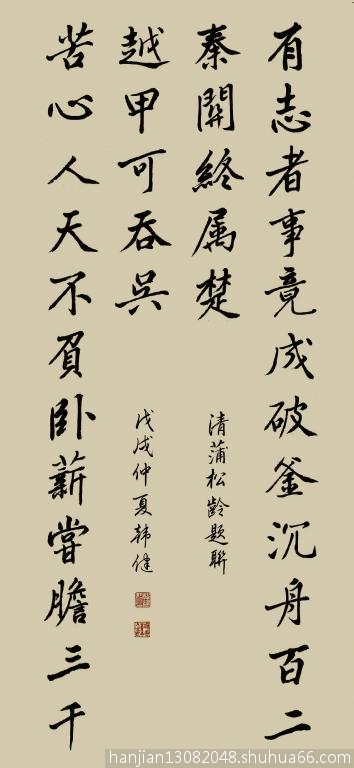 有志者事竟成破釜沉舟百二
秦關終属楚
清蒲松齡題聯
苦心人天不負卧薪嘗膽三千
越甲可吞吳
戊戌仲夏韩健
hanjian13082048.shuhua66.com